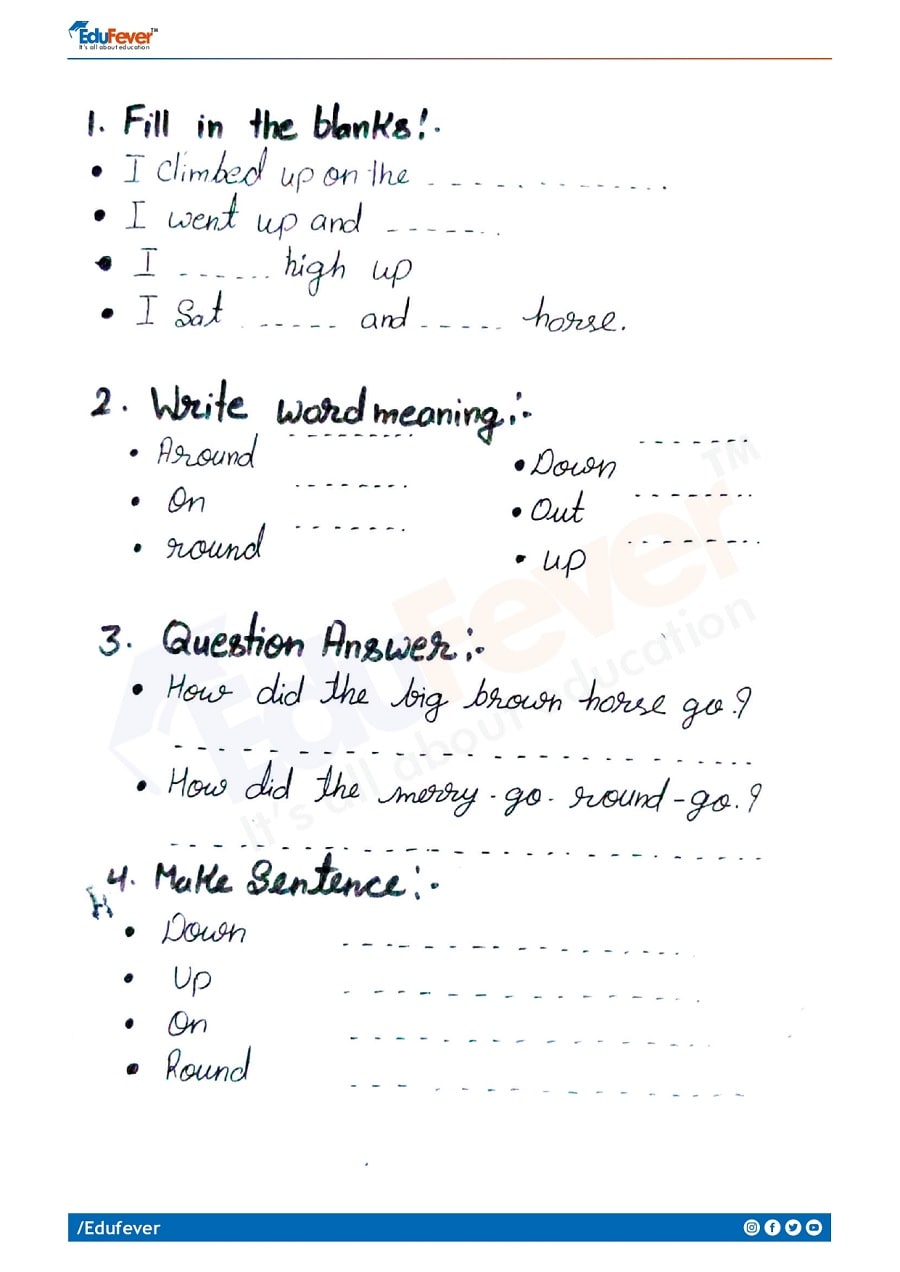 EduFever™
It's all about education
1. Fill in the blanks!-
• I climbed up on the ----------------
• I went up and -------
• I ------- high up
• I Sat ------ and ------ horse.
2. Write word meaning:-
• Around ---------- • Down --------
• On ---------- • Out ---------
• round --------- • up ----------
EduFever™
It's all about education
3. Question Answer:-
• How did the big brown horse go?
-------------------------
• How did the merry-go-round-go.?
-------------------------
4. Make Sentence:-
• Down ----------------
• Up ----------------
• On ----------------
• Round ----------------
/Edufever